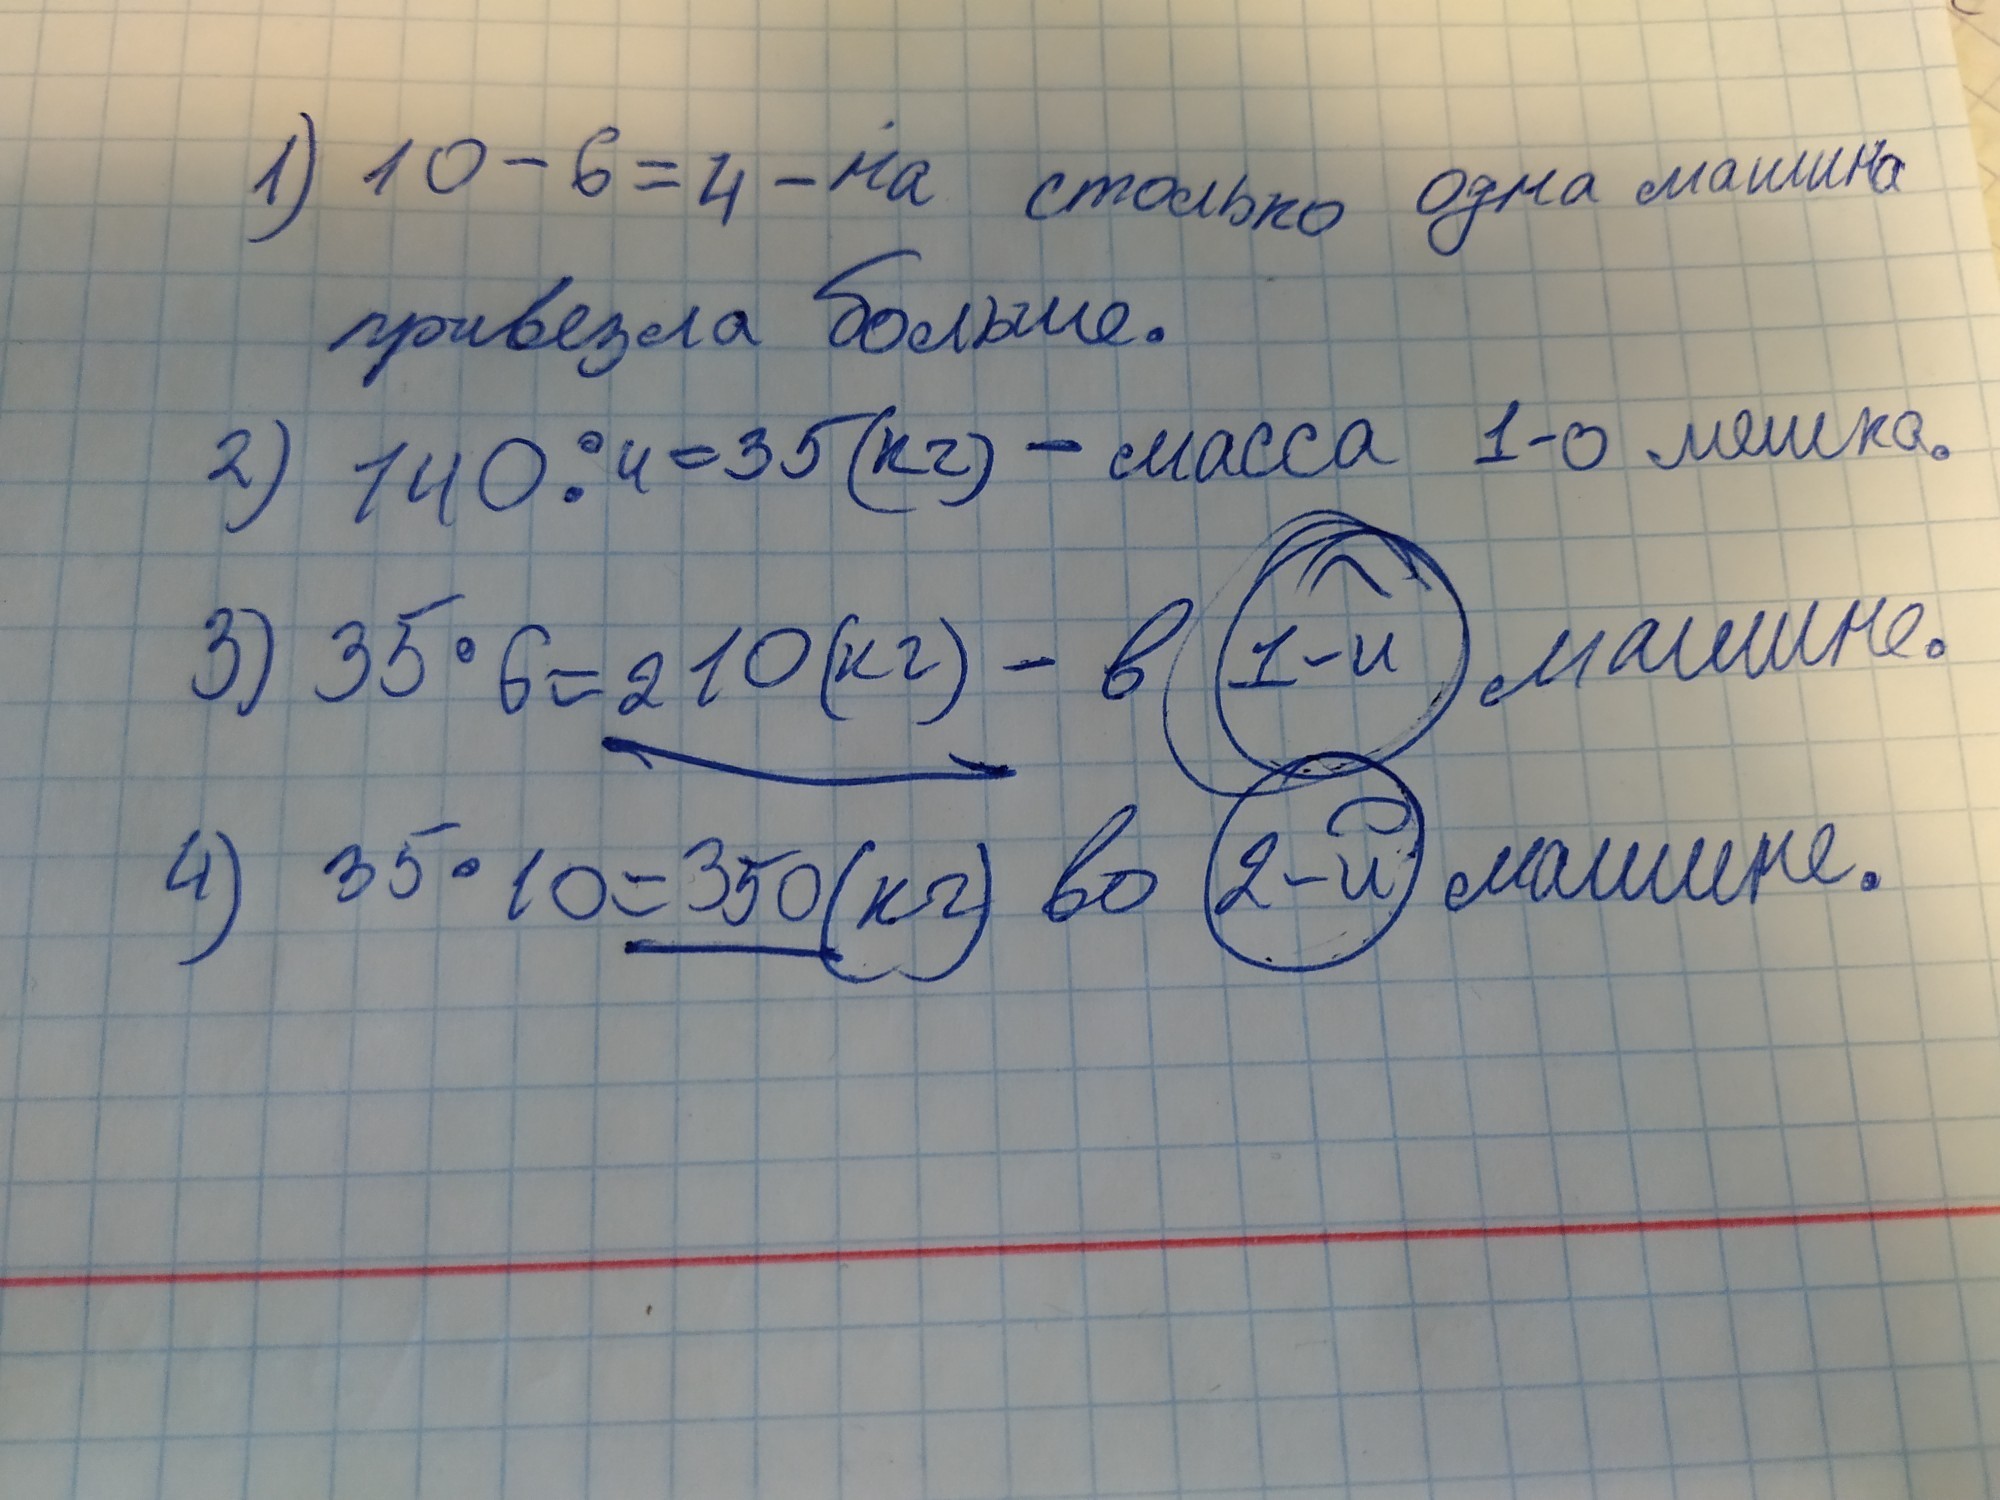 1) 10-6=4 - на столько одна машина
привезла больше.
2) 140:4=35(кг) - масса 1-о мешка.
3) 35·6=210(кг) - в 1-й машине.
4) 35·10=350(кг) во 2-й машине.